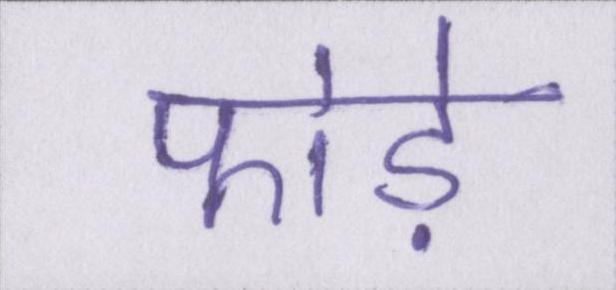 फोड़े